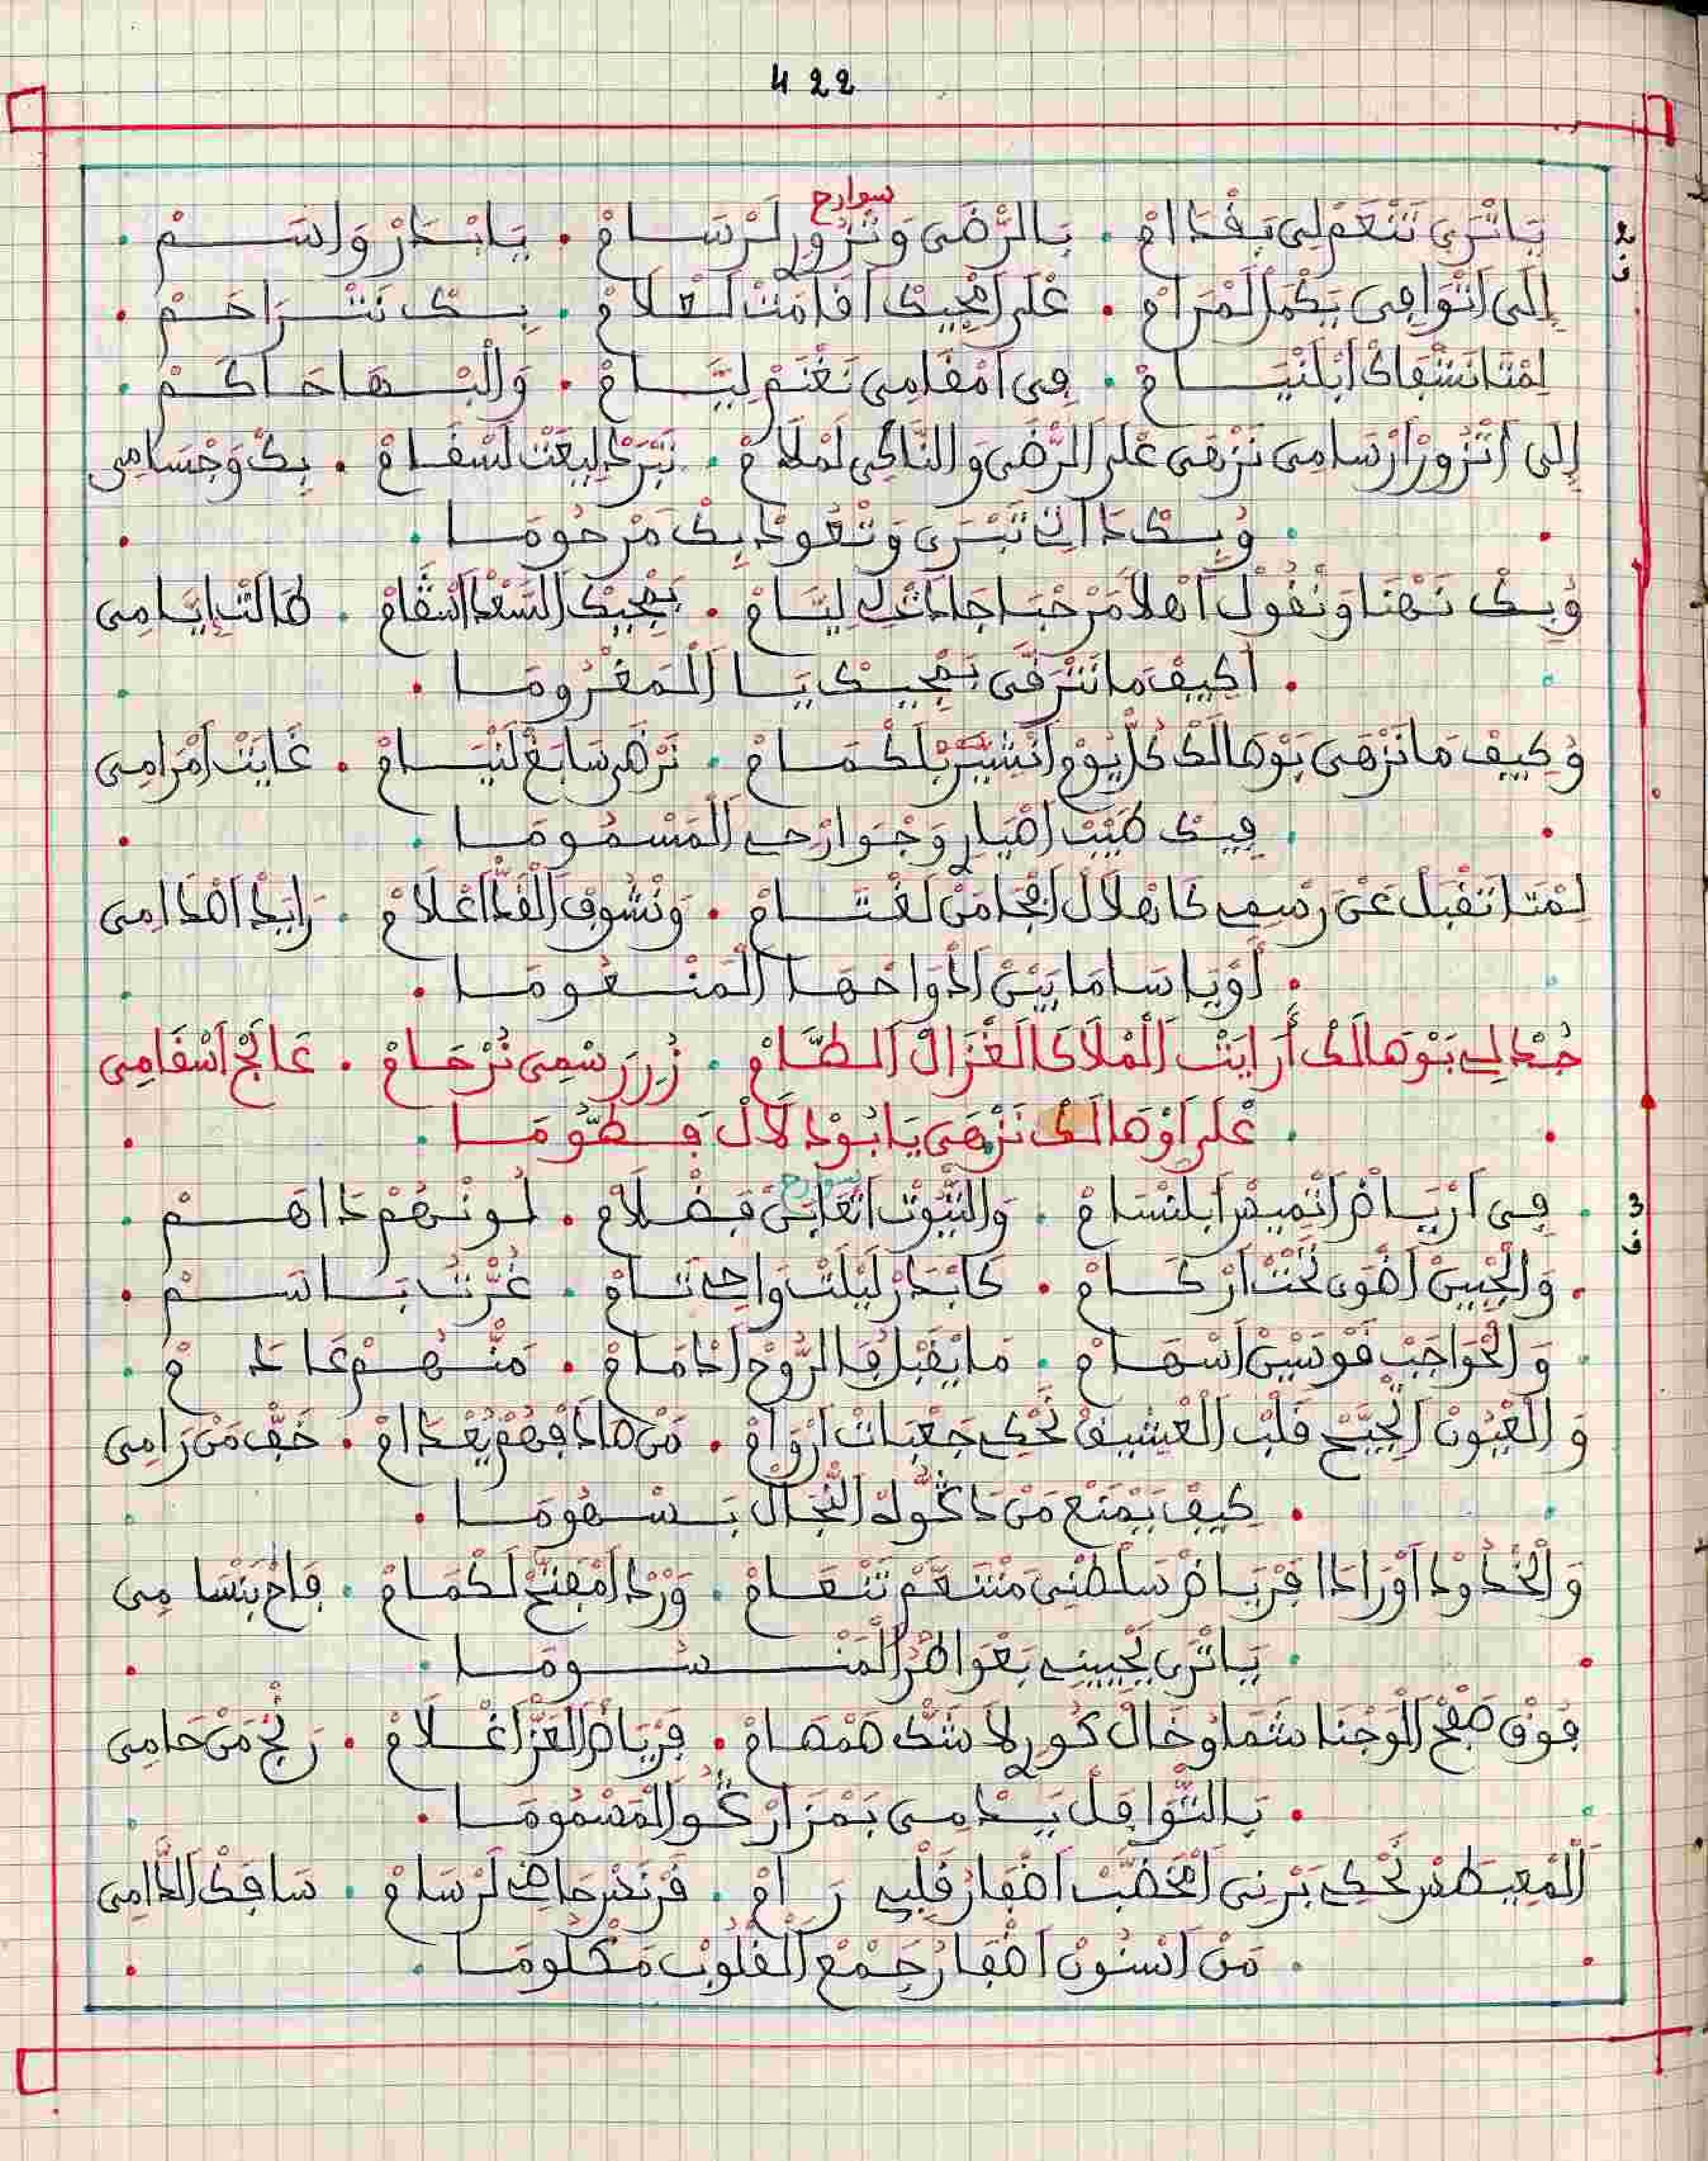 422
سوارح
يَاتْرَى تَنْعَمْ لِى بَقْدَامْ . بَالرّْضَى وَتْزُورْ لَرْسَامْ . يَابْدَرْ وَاسَمْ .
إِلَى اتْوَافِى يَكْمَلْ لَمْرَامْ . عْلَى امْجِيكْ افَامَتْ لَعْلَامْ . بِكْ نَتْرَاحَمْ .
لِمْتَا نَشْفَاكْ ابْلَنْيَامْ . فِى امْقَامِى نَغْنَمْ لِيَّامْ . وَالْبْهَا حَاكَمْ .
إِلَى اتْزُورْ ارْسَامِى نَزْهَى عْلَى الرّْضَى وَالنَّاكِى لَمْلَامْ . نَبْرَدْ لِيعْتْ لَسْقَامْ . بِكْ وَجْسَامِى
. وُبِكْ دَاتِى تَبْرَى وَتْعُودْ بِكْ مَرْحُومَا .
وُبِكْ نَهْنَا وَنْقُولْ اَهْلاَ مَرْحْبَا جَادَتْ لِى لِيَّامْ . بَمْجِيكْ السَّعْدْ اسْقَامْ . طَالَتْ ايَّامِى
. اَكِيفْ مَا نَتْرَقَّى بَمْجِيكْ يَا الْمَغْرُومَا .
وُكِيفْ مَا نَزْهَى بَوْصَالَكْ كُلّْ يُومْ انْشِيَّرْ بَلَكْمَامْ . نَزْهَى سَايَغْ لَنْيَامْ . غَايَتْ امْرَامِى
. فِيكْ طَيَّبْ اضْيَارِى وَجْوَارْحِى الْمَسْمُومَا .
لِمْتَا تَقْبَلْ عَنْ رَسْمِى كَاهْلَالْ افْجَا مَنْ لَغْتَامْ . وَنْشُوفْ الْقَدّْ اعْلَامْ . رَايَدْ اصْدَامِى
. اَوْيَاسَا مَا بَيْنْ ادْوَاحْهَا الْمَنْعُومَا .
جُدْ لِى بَوْصَالَكْ أَرَايَتْ الْمْلَاكَا الَغْزَالْ الطَّامْ . زُرْ رَسْمِى تُرْحَامْ . عَالَجْ اسْقَامِى
. عْلَى اوْصَالَكْ نَزْهَى يَابُودْلَالْ فَطُّومَا .
سوارح
فِى ارْيَاضْ اتْمِيسْ ابْلَنْسَامْ . وَالتّْيُوتْ اتْعَابَنْ فَضْلَامْ . لُونْهُمْ دَاهَمْ .
. وَالْجْبِينْ اضْوَى تَحْتْ ارْكَامْ . كَابْدَرْ لَيْلَتْ وَاحِى تَامْ . غُرّْتُ بَاسَمْ .
. وَالْحْوَاجَبْ قَوْسِينْ اسْهَامْ . مَا يَقْبَلْ فَالرُّوحْ ادْمَامْ . مَنّْهُمْ عَادَمْ .
وَالْعْيُونْ الْجِيَّحْ قَلْبْ الْعْشِيقْ تَحْكِى جَعْبَاتْ ارْوَامْ . مَنْ صَادْفُهُمْ يُعْدَامْ . خَفّْ مَنْ رَامِى
. كِيفْ يَمْنَعْ مَنْ دَكُّوهْ النّْجَالْ بَسْهُومَا .
وَالْخْدُودْ اوْرَادَا فَرْيَاضْ سَلْطْنِى مَتْنَعَّمْ تَنْعَامْ . وَرْدْ امْفَتَّحْ لَكْمَامْ . فَاحْ بَنْسَامِى
. يَاتْرَى يَحْيِينِى بَعْوَاطْرُ الْمَنْسُومَا .
فُوقْ صَفْحْ الْوَجْنَا شَمَا وْخَالْ كُورِى لَاشَكّْ هَمْهَامْ . فَرْيَاضْ الْعَزّْ اغْلَامْ . رَنْجْ مَنْ حَامِى
. بَالتّْوَافَلْ يَدْمِى بَمْزَارْكُو الْمَسْمُومَا .
الْمْعِيطَسْ تَحْكِى بَرْنِى امْخَضَّبْ اضْفَارْ قَلْبِى رَامْ . فَرْنَسْ حَاضِى لَرْسَامْ . سَافَكْ الدَّامِى
. مَنْ اسْنُونْ اضْفَارُ جَمْعْ الْقْلُوبْ مَكْلُومَا .